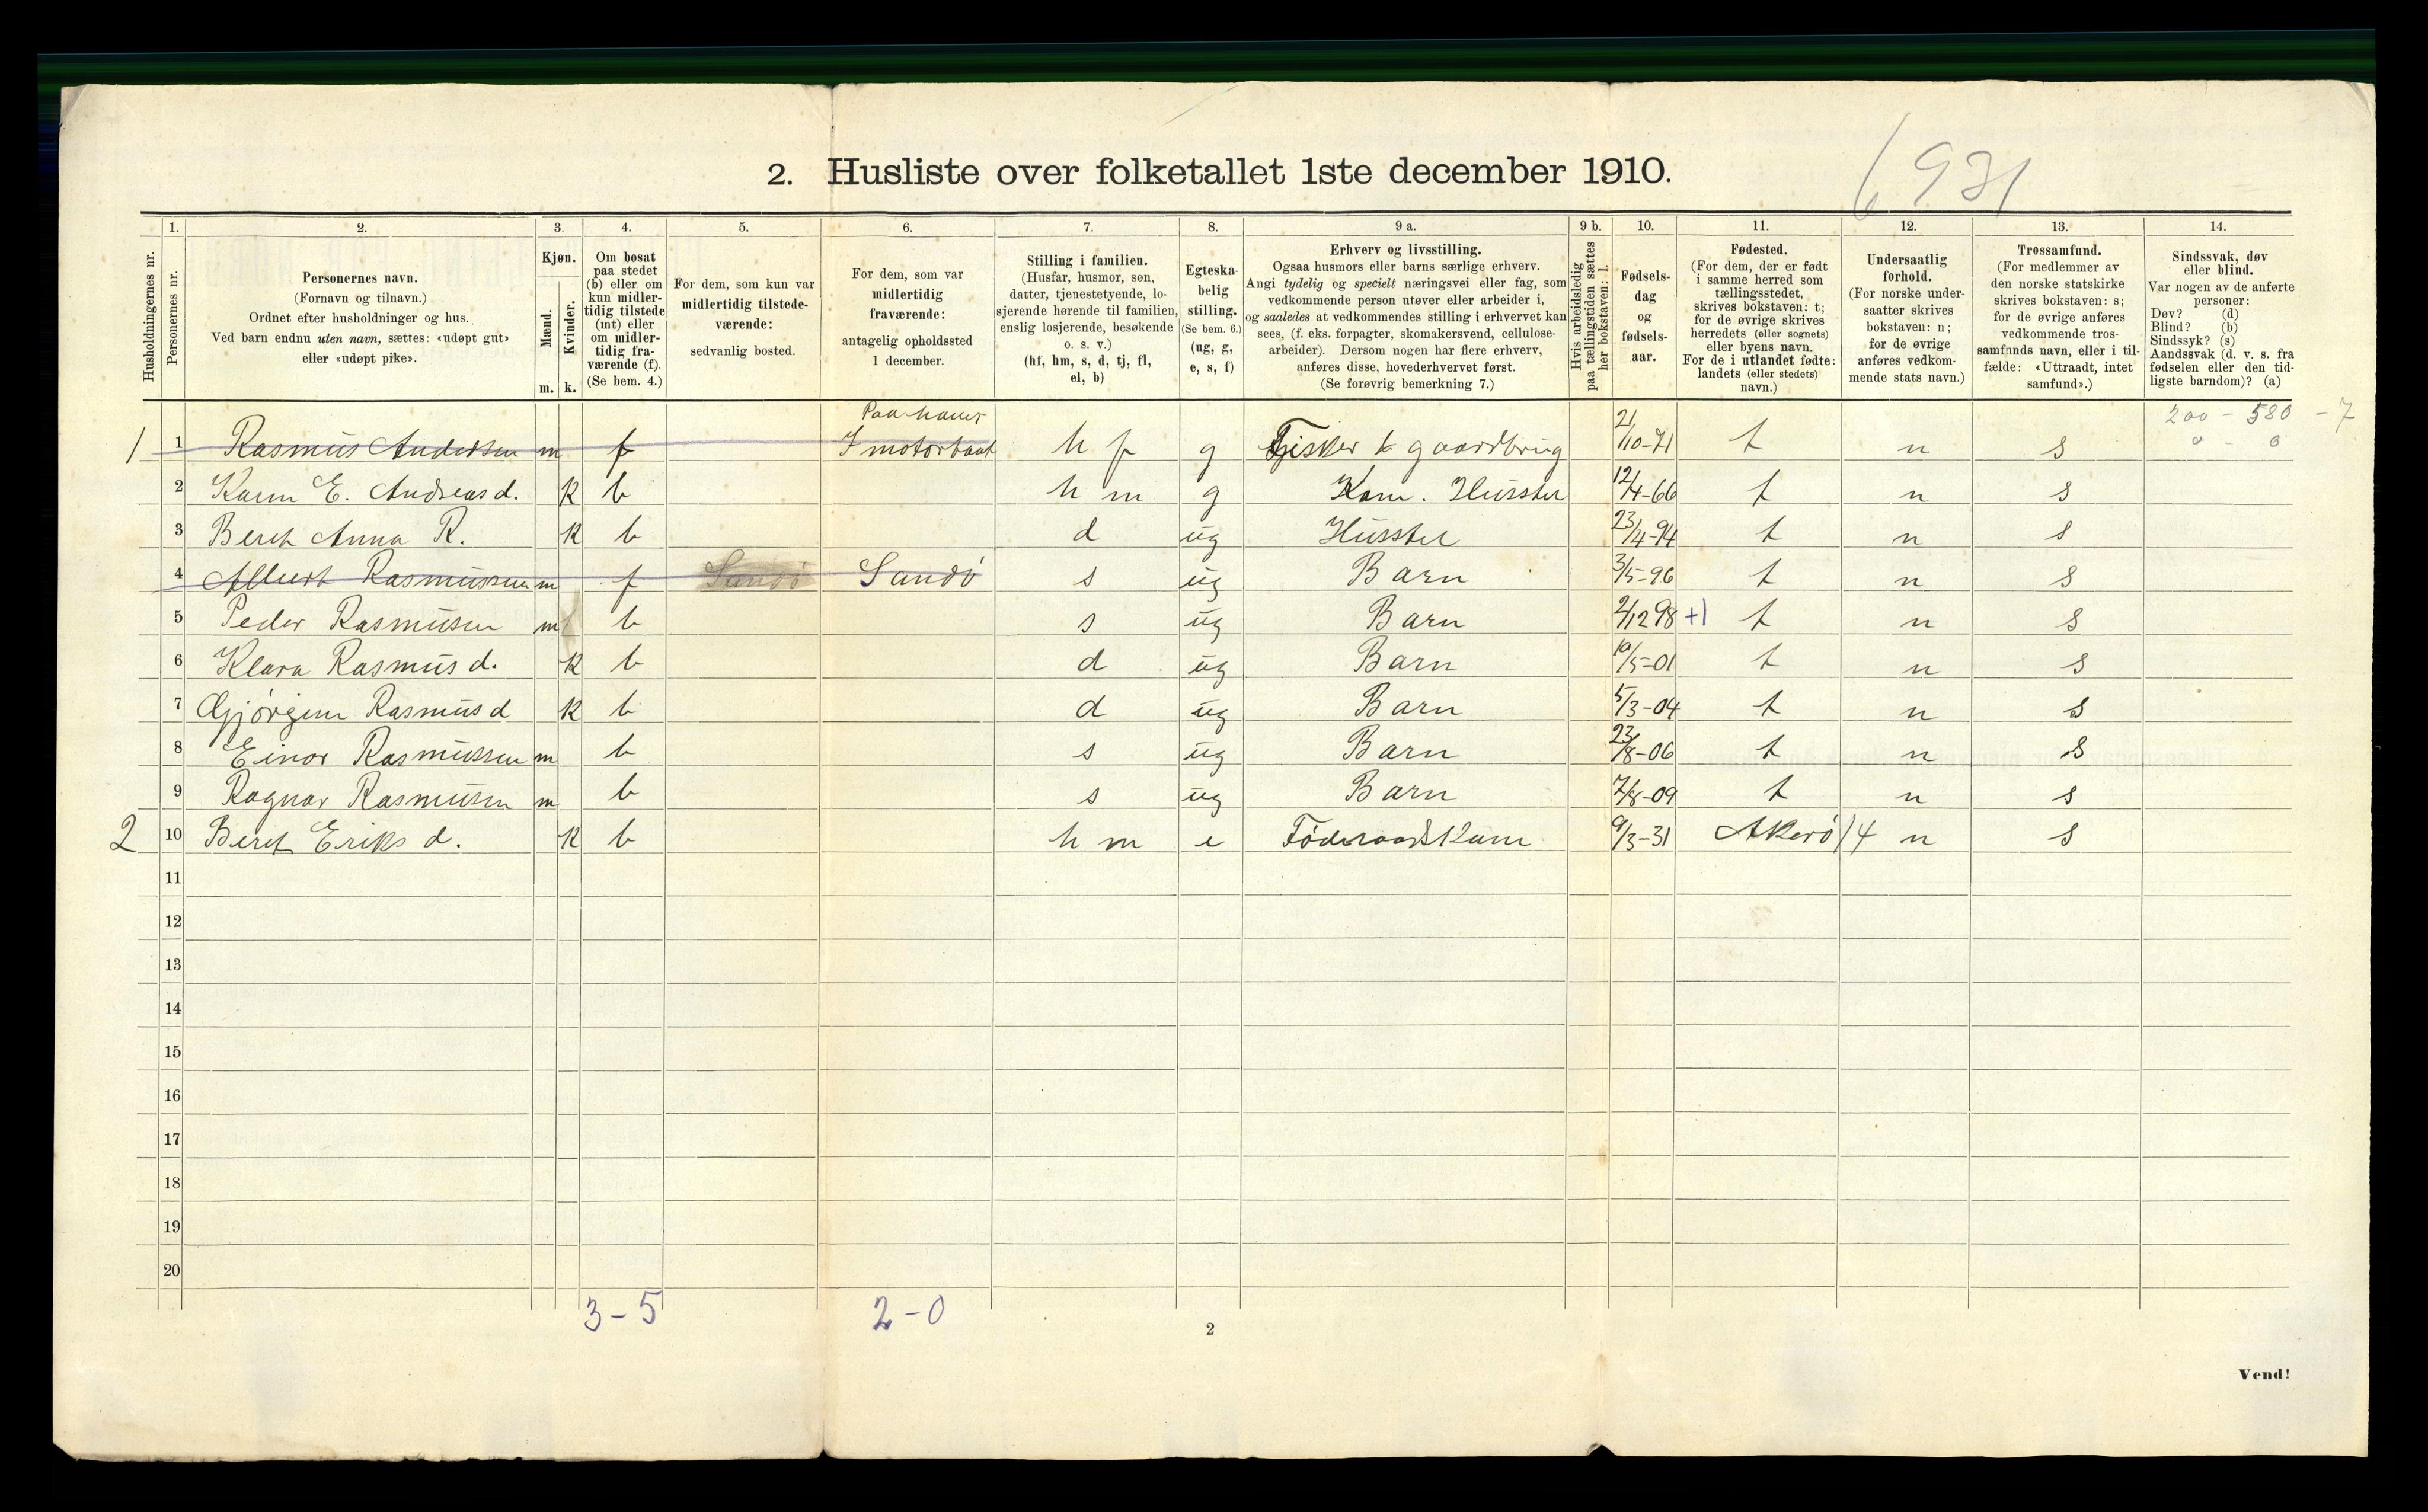 2. Husliste over folketallet 1ste december 1910.
6931
Husholdningernes nr.
1. Personernes nr.
2. Personernes navn. (Fornavn og tilnavn.) Ordnet efter husholdninger og hus. Ved barn endnu uten navn, sættes: «udøpt gut» eller «udøpt pike».
3. Kjøn. Mænd. m. Kvinder. k.
4. Om bosat paa stedet (b) eller om kun midlertidig tilstede (mt) eller om midlertidig fraværende (f). (Se bem. 4.)
5. For dem, som kun var midlertidig tilstedeværende: sedvanlig bosted.
6. For dem, som var midlertidig fraværende: antagelig opholdssted 1 december.
7. Stilling i familien. (Husfar, husmor, søn, datter, tjenestetyende, losjerende hørende til familien, enslig losjerende, besøkende o. s. v.) (hf, hm, s, d, tj, fl, el, b)
8. Egteskabelig stilling. (Se bem. 6.) (ug, g, e, s, f)
9 a. Erhverv og livsstilling. Ogsaa husmors eller barns særlige erhverv. Angi tydelig og specielt næringsvei eller fag, som vedkommende person utøver eller arbeider i, og saaledes at vedkommendes stilling i erhvervet kan sees, (f. eks. forpagter, skomakersvend, cellulosearbeider). Dersom nogen har flere erhverv, anføres disse, hovederhvervet først. (Se forøvrig bemerkning 7.)
9 b. Hvis arbeidsledig paa tællingstiden sættes her bokstaven: l.
10. Fødselsdag og fødselsaar.
11. Fødested. (For dem, der er født i samme herred som tællingsstedet, skrives bokstaven: t; for de øvrige skrives herredets (eller sognets) eller byens navn. For de i utlandet fødte: landets (eller stedets) navn.)
12. Undersaatlig forhold. (For norske undersaatter skrives bokstaven: n; for de øvrige anføres vedkommende stats navn.)
13. Trossamfund. (For medlemmer av den norske statskirke skrives bokstaven: s; for de øvrige anføres vedkommende trossamfunds navn, eller i tilfælde: «Uttraadt, intet samfund».)
14. Sindssvak, døv eller blind. Var nogen av de anførte personer: Døv? (d) Blind? (b) Sindssyk? (s) Aandssvak (d. v. s. fra fødselen eller den tidligste barndom)? (a)
Paa havet 200 - 580 - 7
1 1 Rasmus Andersen m f I motorbaat h f g Fisker & gaardbrug 21/10-71 t n s 0 - 0
2 Karen E. Andreas d. K b h m g Kone. Husstel 12/4-66 t n s
3 Beret Anna R. K b d ug Husstel 23/4-94 t n s
4 Albert Rasmussen m f Sandö Sandö s ug Barn 3/5-96 t n s
5 Peder Rasmusen m b s ug Barn 2/12 98 +1 t n s
6 Klara Rasmus d. K b d ug Barn 10/5-01 t n s
7 Gjørgine Rasmus d K b d ug Barn 5/3-04 t n s
8 Einar Rasmussen m b s ug Barn 23/8-06 t n s
9 Ragnar Rasmusen m b s ug Barn 7/8-09 t n s
2 10 Beret Eriks d. K b h m e 9/3-31 Akerö 14 n s
11
12
13
14
15
16
17
18
19
20
3-5 2-0
2
Vend!